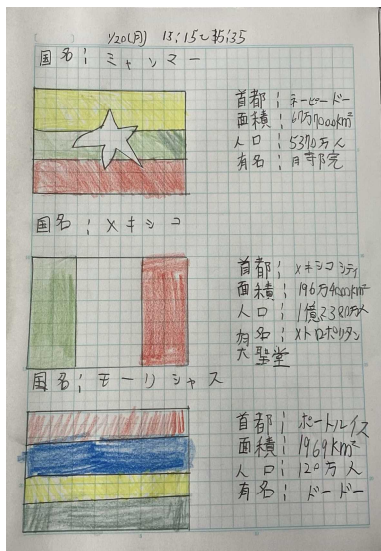 1/20(月) 13:15〜15:35
国名:ミャンマー
首都:ネーピードー
面積:67万7000km²
人口:5370万人
有名:時邦院
国名:メキシコ
首都:メキシコシティ
面積:196万4000km²
人口:1億2380万人
有名:メトロポリタン
大聖堂
国名:モーリシャス
首都:ポートルイス
面積:1969km²
人口:120万人
有名:ドードー